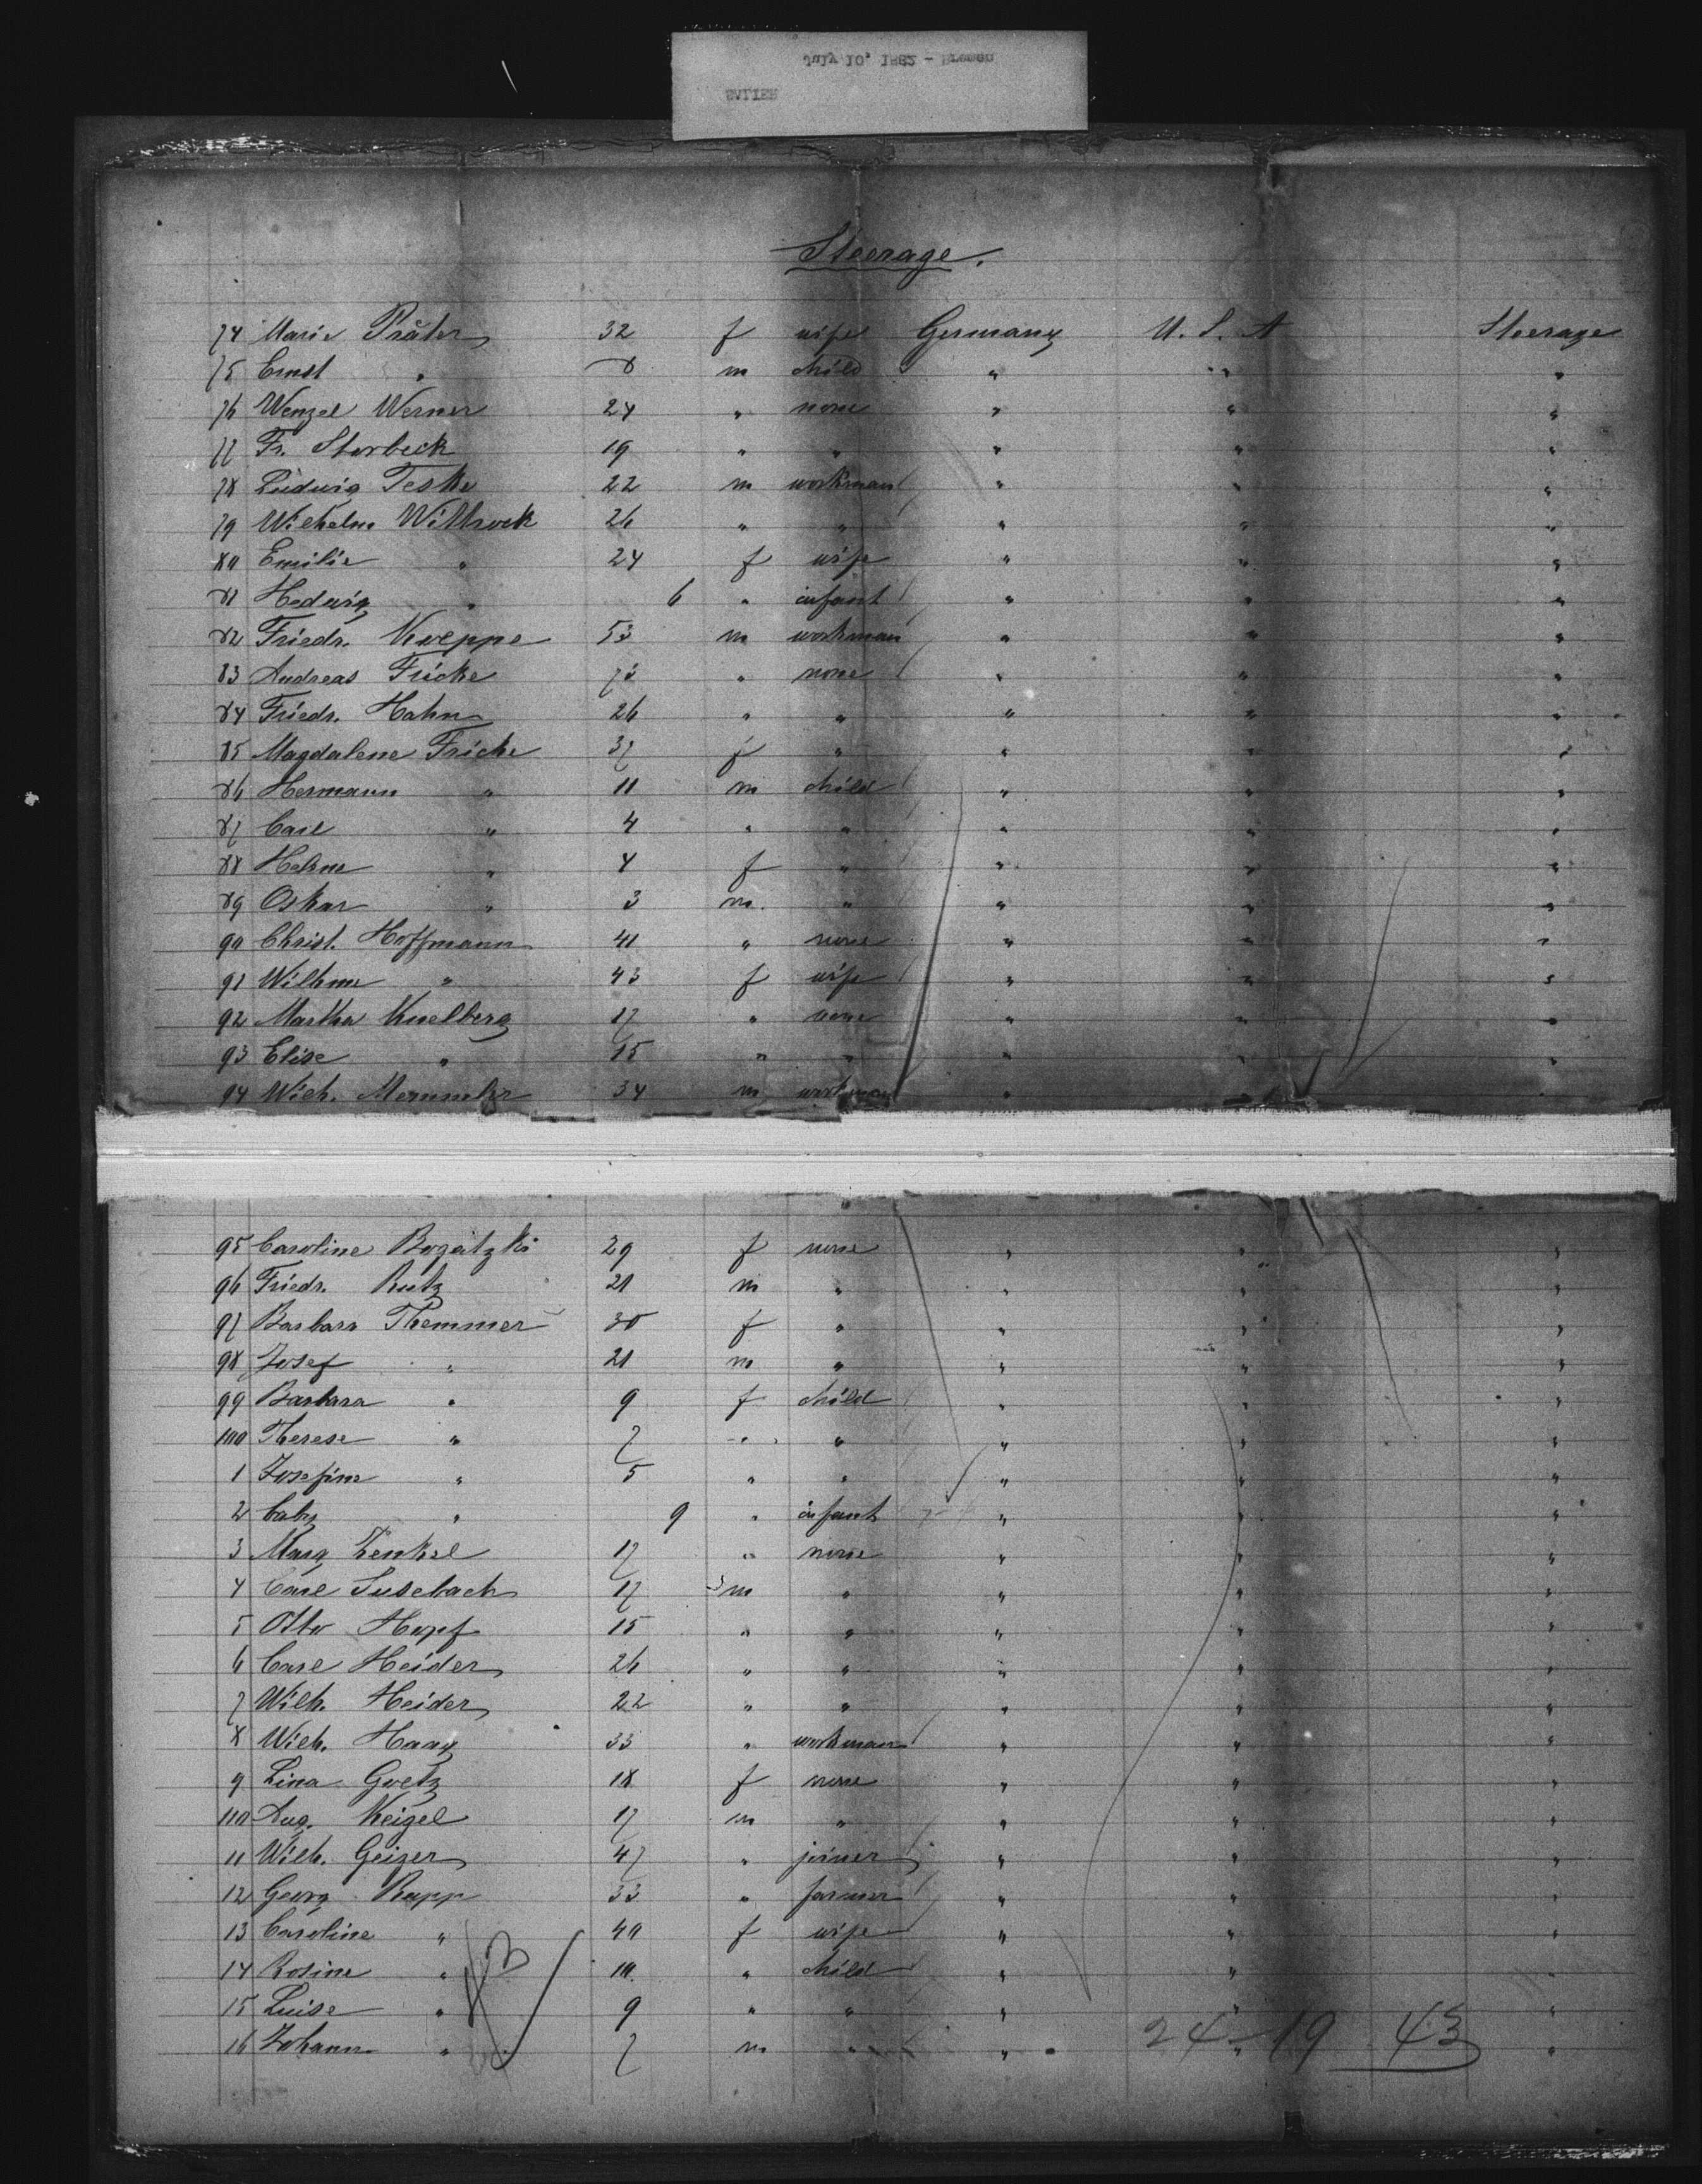 July 10, 1882 - Bremen
Steerage.
74 Marie Präter 32 f wife Germany U. S. A Steerage
75 Ernst " 8 m child " " "
76 Wenzel Werner 24 " none " " "
77 Fr. Storbeck 19 " " " " "
78 Ludwig Teske 22 m workman " " "
79 Wilhelm Wittrock 26 " " " " "
80 Emilie " 24 f wife " " "
81 Hedwig " 6 " infant " " "
82 Friedr. Kroeppe 53 m workman " " "
83 Andreas Fricke " none " " "
84 Friedr. Hahn 26 " " " " "
85 Magdalene Fricke 37 f " " " "
86 Hermann " 11 m child " " "
87 Carl " 4 " " " " "
88 Helene " 4 f " " " "
89 Oskar " 3 m " " " "
90 Christ. Hoffmann 41 " none " " "
91 Wilhme " 43 f wife " " "
92 Martha Knelberg 17 " none " " "
93 Elise " 15 " " " " "
94 Wilh. 34 m workman " " "
95 Caroline Rogatzki 29 f none " " "
96 Friedr. Rutz 21 m " " " "
97 Barbara Themmer 30 f " " " "
98 Josef " 21 m " " " "
99 Barbara " 9 f child " " "
100 Therese " 7 " " " " "
1 Josefine " 5 " " " " "
2 " 9 " infant " " "
3 Marg Zenkel 17 " none " " "
4 Carl Suselbach 17 m " " " "
5 Otto Hopf 15 " " " " "
6 Carl Heider 26 " " " " "
7 Wilh. Heider 22 " " " " "
8 Wilh. Haag 33 " workman " " "
9 Lina Goetz 18 f none " " "
110 Aug. Keigel 17 m " " " "
11 Wilh. Geiger 47 " joiner " " "
12 Georg Rupp 33 " farmer " " "
13 Caroline " 40 f wife " " "
14 Rosine " 10 " child " " "
15 Luise " 9 " " " " "
16 Johann " 7 m " " " "
43
24 - 19 43